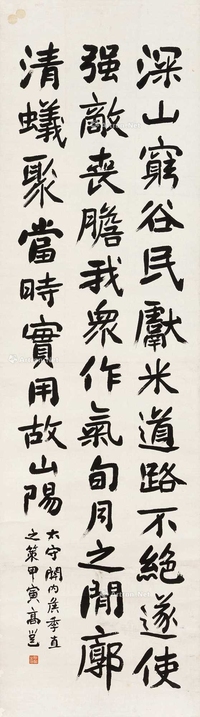 深山窮谷民獻米道路不絕遂使
强敵喪膽我衆作氣旬月之間廓
清蟻聚當時實用故山陽
太守關內侯季直
之策甲寅高邕